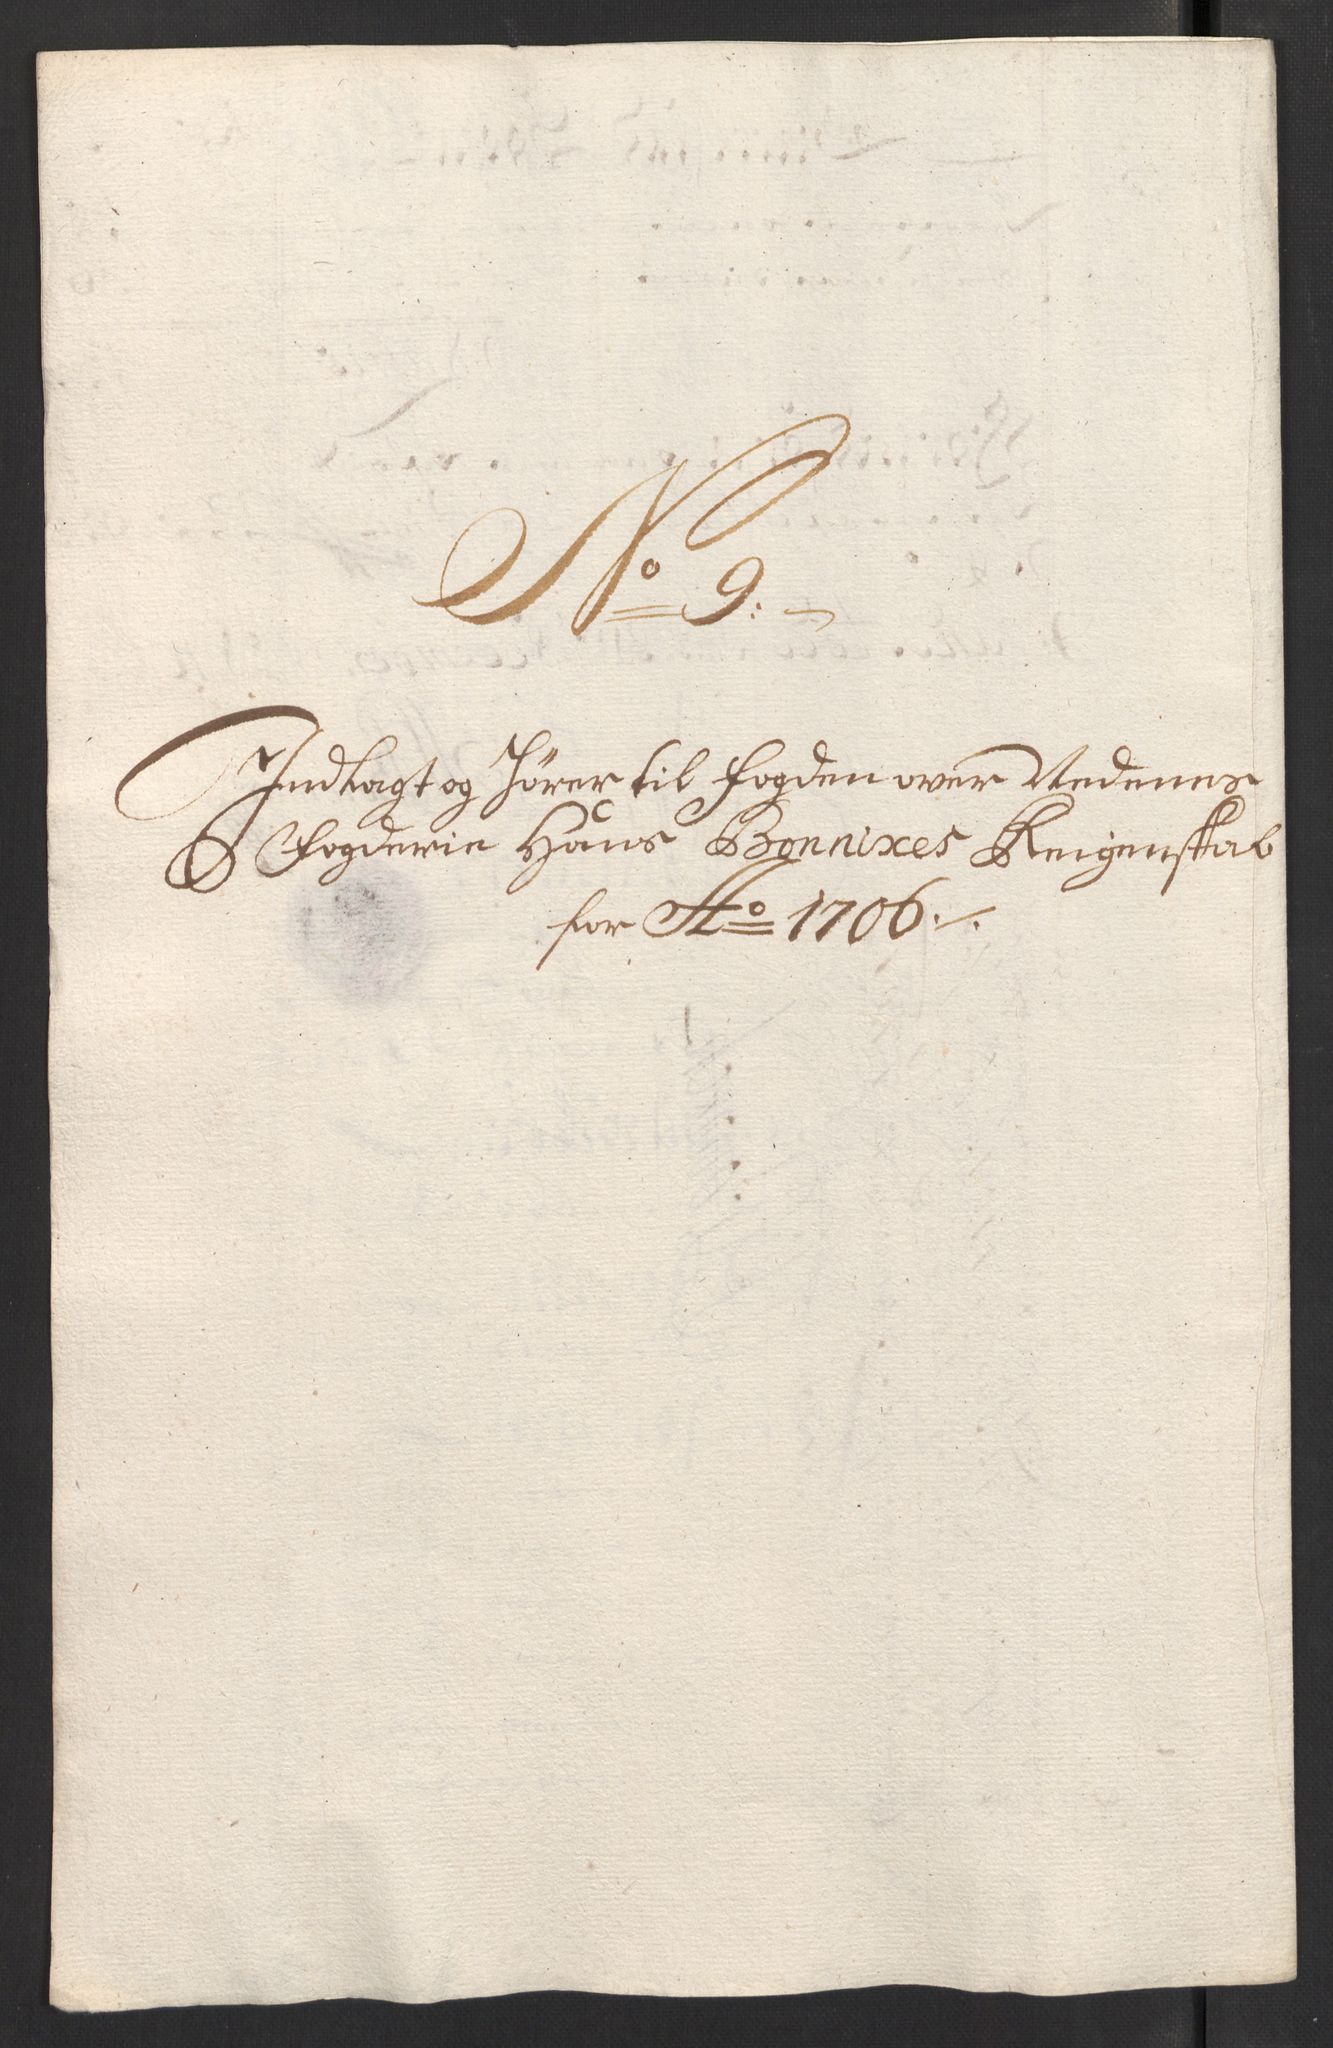 No 9.
Indlagt og hörer til fogden over Nedenes
Fogderie Hans Bennixes Reigenskab
for Ao 1706.